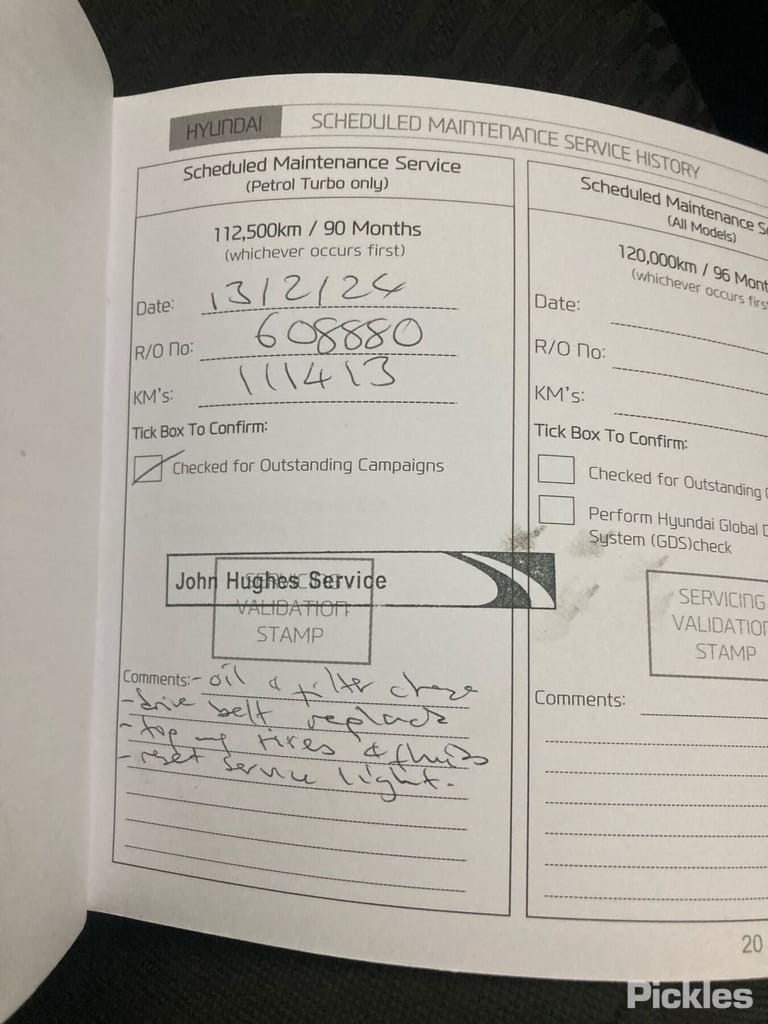 HYUNDAI SCHEDULED MAINTENANCE SERVICE HISTORY
Scheduled Maintenance Service
(Petrol Turbo only)
112,500km / 90 Months
(whichever occurs first)
Date: 13/2/24
R/O No: 608880
KM's: 111413
Tick Box To Confirm:
Checked for Outstanding Campaigns
John Hughes Service
SERVICING
VALIDATION
STAMP
Comments:- oil & filter change
- drive belt replace
- top up tires & fluids
- reset service light.
Scheduled Maintenance S
(All Models)
120,000km / 96 Mont
(whichever occurs firs
Date:
R/O No:
KM's:
Tick Box To Confirm:
Checked for Outstanding
Perform Hyundai Global D
System (GDS)check
SERVICING
VALIDATION
STAMP
Comments:
20
Pickles